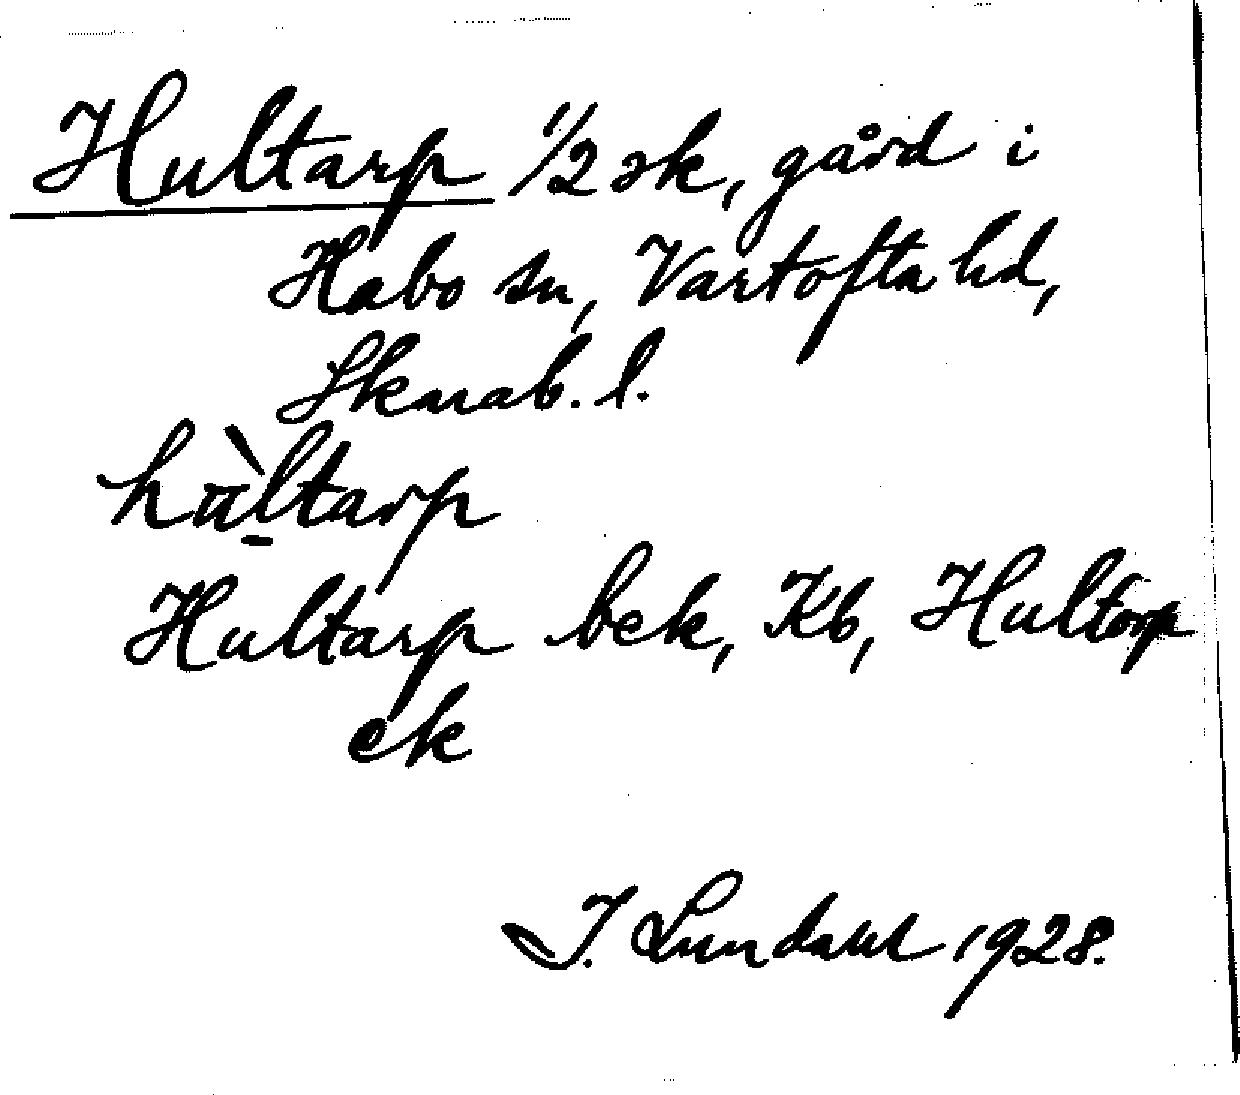 Hultarp 1/2 sk, gård i
Habo sn, Vartofta hd,
Skarab. l.
hùltarp
Hultarp bek, Kb, Hultorp
ek
I. Lundahl 1928.